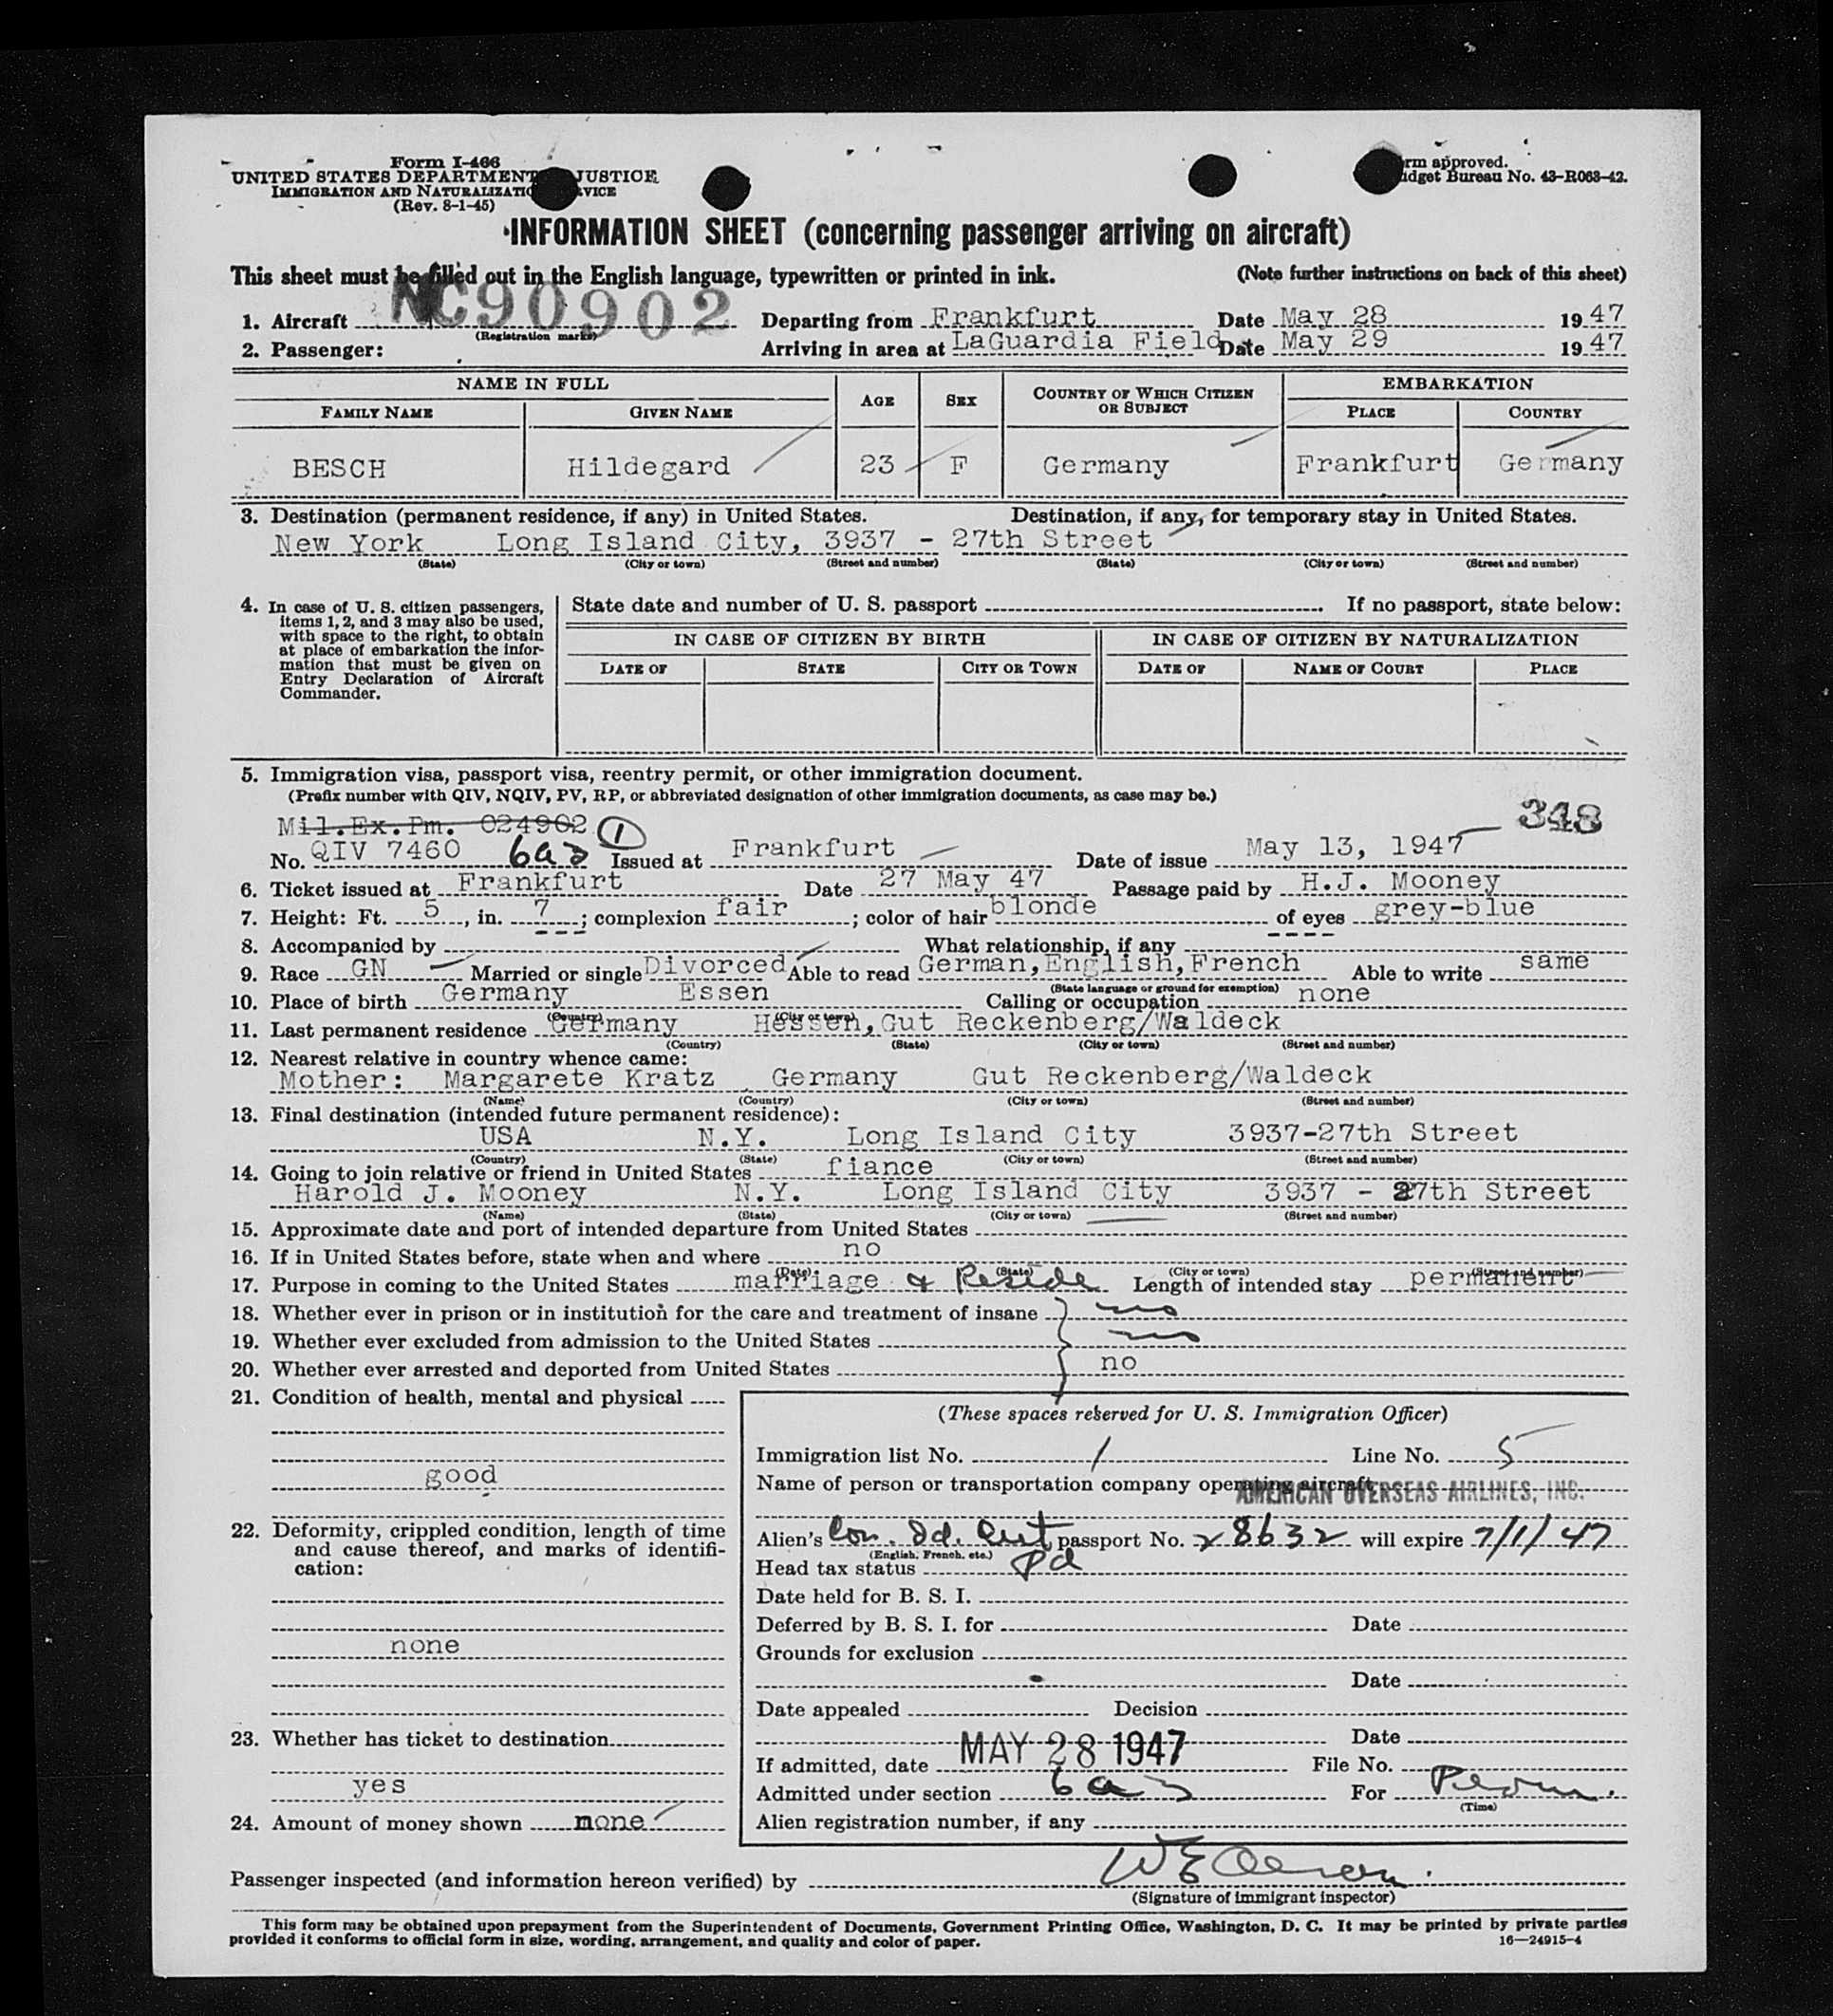 Form I-466
UNITED STATES DEPARTMENT JUSTICE
IMMIGRATION AND NATURALIZATIO VICE
(Rev. 8-1-45)
rm approved.
dget Bureau No. 43-R063-42.
INFORMATION SHEET (concerning passenger arriving on aircraft)
This sheet must be filled out in the English language, typewritten or printed in ink. (Note further instructions on back of this sheet)
1. Aircraft NC90902 Departing from Frankfurt Date May 28 1947
(Registration marks)
2. Passenger: Arriving in area at LaGuardia Field Date May 29 1947
NAME IN FULL AGE SEX COUNTRY OF WHICH CITIZEN OR SUBJECT EMBARKATION
FAMILY NAME GIVEN NAME PLACE COUNTRY
BESCH Hildegard 23 F Germany Frankfurt Germany
3. Destination (permanent residence, if any) in United States. Destination, if any, for temporary stay in United States.
New York Long Island City, 3937 - 27th Street
(State) (City or town) (Street and number) (State) (City or town) (Street and number)
4. In case of U. S. citizen passengers, items 1, 2, and 3 may also be used, with space to the right, to obtain at place of embarkation the information that must be given on Entry Declaration of Aircraft Commander.
State date and number of U. S. passport If no passport, state below:
IN CASE OF CITIZEN BY BIRTH IN CASE OF CITIZEN BY NATURALIZATION
DATE OF STATE CITY OR TOWN DATE OF NAME OF COURT PLACE
5. Immigration visa, passport visa, reentry permit, or other immigration document.
(Prefix number with QIV, NQIV, PV, RP, or abbreviated designation of other immigration documents, as case may be.)
348
Mil.Ex.Pm. 024902 1
No. QIV 7460 6a3 Issued at Frankfurt Date of issue May 13, 1947
6. Ticket issued at Frankfurt Date 27 May 47 Passage paid by H.J. Mooney
7. Height: Ft. 5, in. 7; complexion fair; color of hair blonde of eyes grey-blue
8. Accompanied by What relationship, if any
9. Race GN Married or single Divorced Able to read German,English,French Able to write same
(State language or ground for exemption)
10. Place of birth Germany Essen Calling or occupation none
(Country) (City or town)
11. Last permanent residence Germany Hessen, Gut Reckenberg/Waldeck
(Country) (State) (City or town) (Street and number)
12. Nearest relative in country whence came:
Mother: Margarete Kratz Germany Gut Reckenberg/Waldeck
(Name) (Country) (City or town) (Street and number)
13. Final destination (intended future permanent residence):
USA N.Y. Long Island City 3937-27th Street
(Country) (State) (City or town) (Street and number)
14. Going to join relative or friend in United States fiance
Harold J. Mooney N.Y. Long Island City 3937 - 27th Street
(Name) (State) (City or town) (Street and number)
15. Approximate date and port of intended departure from United States
16. If in United States before, state when and where no
(Date) (State) (City or town) (Street and number)
17. Purpose in coming to the United States marriage & Reside Length of intended stay permanent
18. Whether ever in prison or in institution for the care and treatment of insane no
19. Whether ever excluded from admission to the United States no
20. Whether ever arrested and deported from United States no
21. Condition of health, mental and physical
good
22. Deformity, crippled condition, length of time and cause thereof, and marks of identification:
none
23. Whether has ticket to destination
yes
24. Amount of money shown none
(These spaces reserved for U. S. Immigration Officer)
Immigration list No. 1 Line No. 5
Name of person or transportation company operating aircraft AMERICAN OVERSEAS AIRLINES, INC.
Alien's passport No. 28632 will expire 7/1/47
(English, French, etc.)
Head tax status Pd
Date held for B. S. I.
Deferred by B. S. I. for Date
Grounds for exclusion
Date
Date appealed Decision
Date
If admitted, date MAY 28 1947 File No.
Admitted under section 6a3 For Perm.
(Time)
Alien registration number, if any
Passenger inspected (and information hereon verified) by
(Signature of immigrant inspector)
This form may be obtained upon prepayment from the Superintendent of Documents, Government Printing Office, Washington, D. C. It may be printed by private parties
provided it conforms to official form in size, wording, arrangement, and quality and color of paper. 16—24915-4